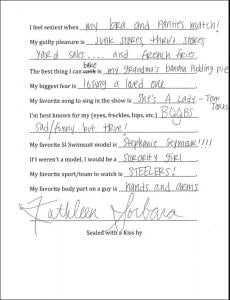 I feel sexiest when my bra and panties match!
My guilty pleasure is Junk stores, thrift stores,
Yard sales.... and french fries
bake
The best thing I can cook is my grandma's banana pudding pie
My biggest fear is losing a loved one
My favorite song to sing in the show is She's A Lady - Tom
Jones
I'm best known for my (eyes, freckles, hips, etc.) BOOBS
Sad/funny but true!
My favorite SI Swimsuit model is Stephanie Seymour!!!!
If I weren't a model, I would be a Sorority girl
My favorite sport/team to watch is STEELERS!
My favorite body part on a guy is hands and arms
Kathleen Sorbara
Sealed with a Kiss by